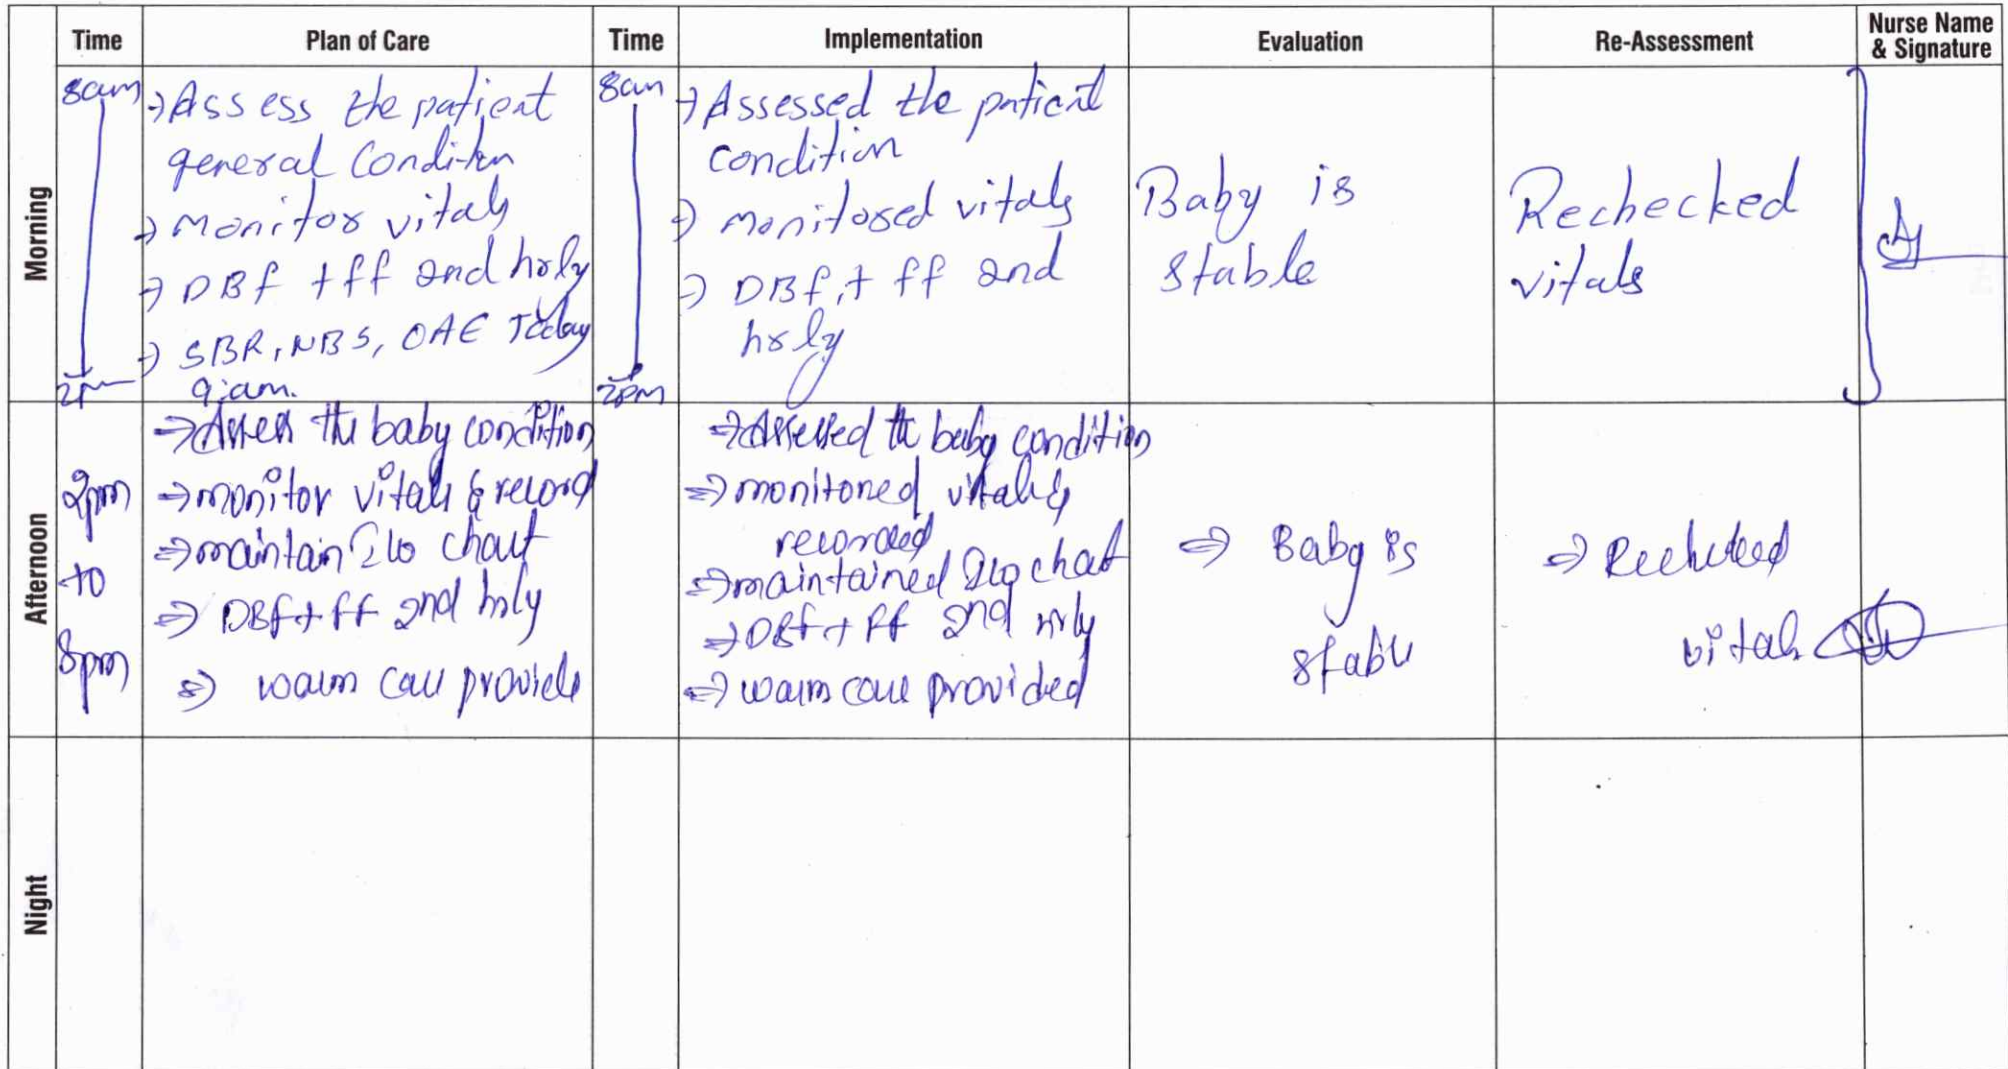 Time Plan of Care Time Implementation Evaluation Re-Assessment Nurse Name
& Signature
Morning
8am
2pm
→ Assess the patient
general Condition
→ Monitor vitals
→ DBF + ff 2nd hrly
→ SBR, NBS, OAE Today
9am.
8am
2pm
→ Assessed the patient
condition
→ monitored vitals
→ DBF, + ff 2nd
hrly
Baby is
stable
Rechecked
vitals
Afternoon
2pm
to
8pm
⇒ Assess the baby condition
⇒ monitor vitals & record
⇒ maintain I/o chart
⇒ DBf + ff 2nd hrly
⇒ warm care provide
⇒ Assessed the baby condition
⇒ monitored vitals &
recorded
⇒ maintained I/o chart
⇒ DBf + ff 2nd hrly
⇒ warm care provided
⇒ Baby is
stable
⇒ Rechecked
vitals
Night